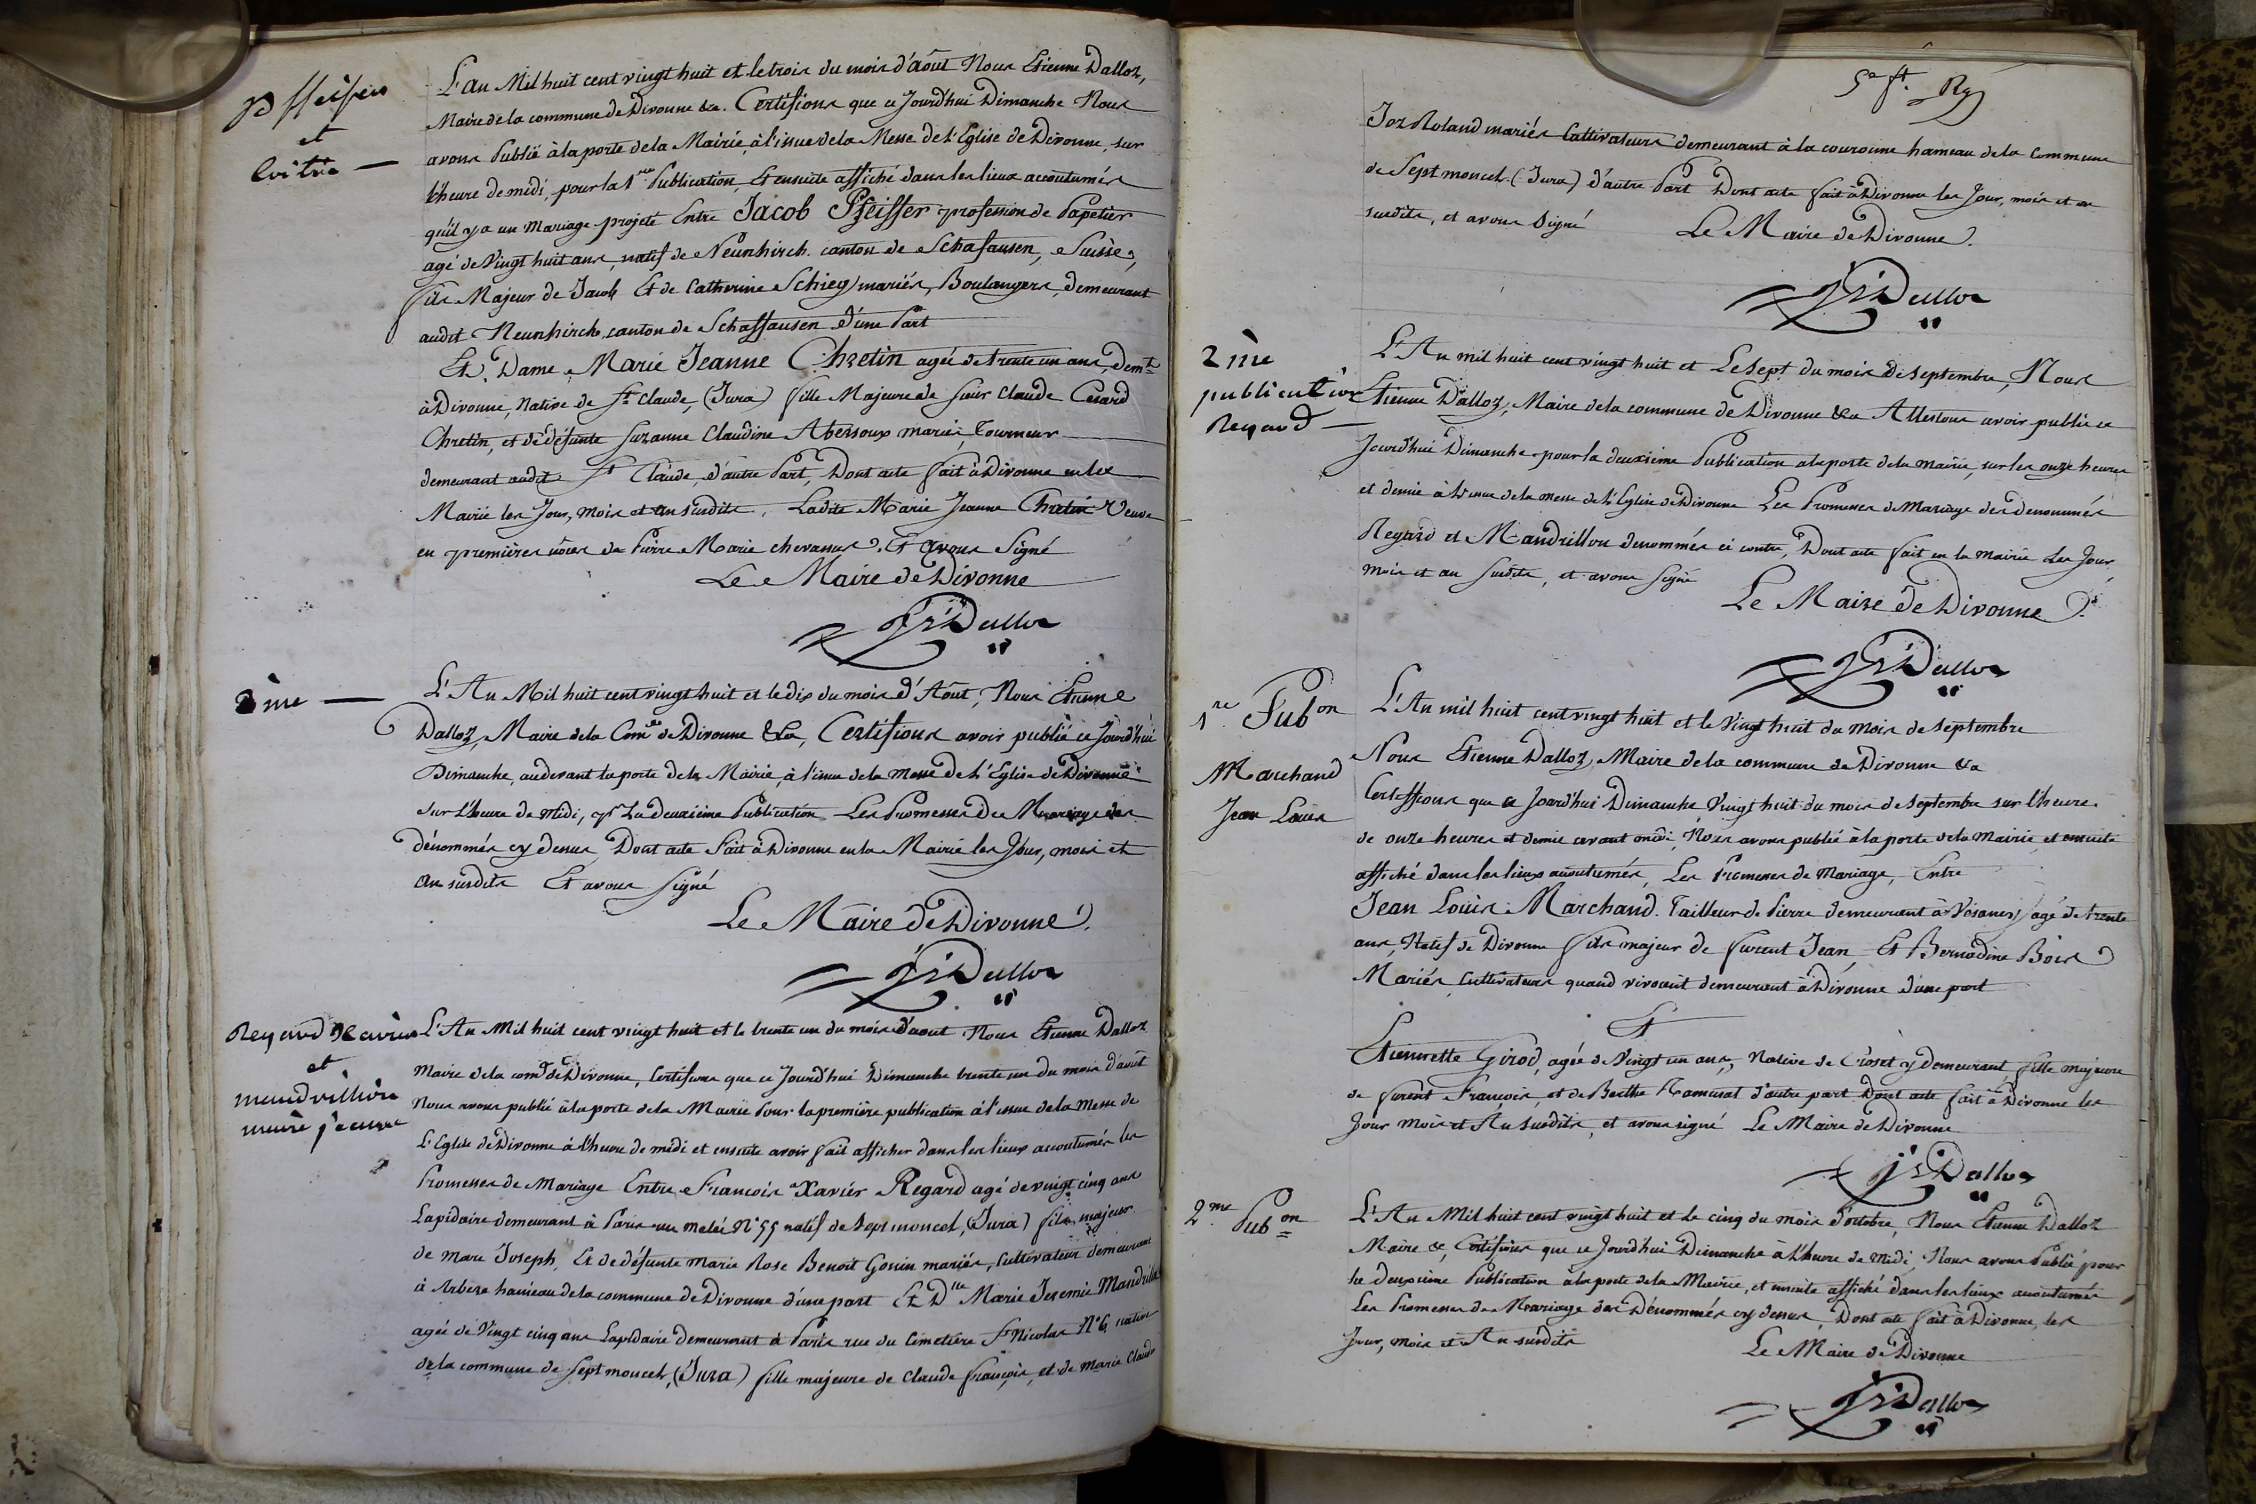 Pffeifer
et
L'an Mil huit cent vingt huit et le trois du mois d'août Nous Etienne Dalloz,
Maire de la commune de Divonne &a. Certifions que ce Jourd'hui Dimanche Nous
avons Publié à la porte de la Mairie, à l'issue de la Messe de l'Eglise de Divonne, sur
l'heure de midi, pour la 1re Publication, Et ensuite affiché dans les lieux accoutumés
qu'il y a un Mariage projeté Entre Jacob Pfeiffer profession de Papetier
agé de Vingt huit ans, natif de Neunhirch. canton de Schafausen, Suisse,
fils Majeur de Jacob Et de Catherine Schieg mariés, Boulangers, demeurant
audit Neunhirch, canton de Schaffausen d'une Part
Et. Dame Marie Jeanne Chretin agée de trente un ans, demt.
à Divonne, Native de St Claude, (Jura) fille Majeure de Claude Cesard
Chretin, et de défunte Suzanne Claudine mariés, Tourneur
demeurant audit St Claude, d'autre Part, Dont acte fait à Divonne en la
Mairie les Jour, Mois et an susdits. Ladite Marie Jeanne Chretin Veuve
en premières nôces de Pierre Marie chevassus. Et avons Signé
Le Maire de Divonne
Dalloz
2ème
L'An Mil huit cent vingt huit et le dix du mois d'Août, Nous Etienne
Dalloz, Maire de la Come de Divonne &a, Certifions avoir publié ce Jourd'hui
Dimanche, au devant la porte de la Mairie, à l'issue de la messe de l'Eglise de Divonne
sur l'heure de Midi, pr La deuxième Publication Les Promesses de Mariage des
dénommés cy dessus, Dont acte Fait à Divonne en la Mairie les Jour, mois et
an susdits Et avons Signé
Le Maire de Divonne
Dalloz
Regard Xavier
et
mandrillion
L'An Mil huit cent vingt huit et le trente un du mois d'aout Nous Etienne Dalloz
Maire de la come de Divonne, Certifions que ce Jourd'hui Dimanche trente un du mois d'août
Nous avons publié à la porte de la Mairie Pour la première publication à l'issue de la Messe de
L'Eglise de Divonne à l'heure de midi et ensuite avoir fait afficher dans les lieux accoutumés les
Promesses de Mariage Entre Francois Xavier Regard agé de vingt cinq ans
Lapidaire demeurant à Paris rue N° 55 natif de Sept moncel, (Jura) fils majeur
de Marc Joseph, Et de défunte Marie Rose Benoit Gonin mariés, Cultivateur demeurant
à Arbere hameau de la commune de Divonne d'une part Et Dlle Marie Jeremie Mandrillon
agée de Vingt cinq ans Lapidaire demeurant à Paris rue du Cimetière St Nicolas N° 6 native
de la commune de Sept moncel, (Jura) fille majeure de Claude François, et de Marie Claude
5e ft. Rg
Joz Roland mariés Cultivateurs demeurant à la couronne hameau de la Commune
de Sept moncel (Jura) d'autre Part Dont acte fait à Divonne les Jour, mois et an
susdits, et avons Signé
Le Maire de Divonne.
Dalloz
2me
publication
Regard
L'An mil huit cent vingt huit et Le sept du mois de septembre, Nous
Etienne Dalloz, Maire de la commune de Divonne &a Attestons avoir publié ce
Jourd'hui Dimanche pour la deuxième Publication à la porte de la Mairie, sur les onze heures
et demie à l'issue de la messe de l'Eglise de Divonne Les Promesses de Mariage des dénommés
Regard et Mandrillon dénommés ci contre, Dont acte fait en la Mairie Les Jour,
mois et an susdits, et avons Signé
Le Maire de Divonne
Dalloz
1re Pubon
Marchand
Jean Louis
L'An mil huit cent vingt huit et le Vingt huit du mois de septembre
Nous Etienne Dalloz, Maire de la commune de Divonne &a
Certiffions que ce Jourd'hui Dimanche, Vingt huit du mois de Septembre sur l'heure
de onze heures et demie avant midi, Nous avons publié à la porte de la Mairie, et ensuite
affiché dans les lieux accoutumés, Les Promesses de Mariage, Entre
Jean Louis Marchand. Tailleur de Pierre demeurant à agé de trente
ans, Natif de Divonne fils majeur de furent Jean, Et Bernadine Bois
Mariés, Cultivateurs quand vivoient demeurant à Divonne d'une part
Et
Etiennette Girod, agée de Vingt un ans, Native de Croset y demeurant, fille majeure
de furent Francois, et de Berthe d'autre part Dont acte fait à Divonne les
Jour mois et An susdits, et avons signé Le Maire de Divonne
Dalloz
2me Pubon
L'An Mil huit cent vingt huit et le cinq du mois d'octobre, Nous Etienne Dalloz
Maire &, Certifions que ce Jourd'hui Dimanche à l'heure de Midi, Nous avons Publié pour
la deuxième Publication à la porte de la Mairie, et ensuite affiché dans les lieux accoutumés
Les Promesses de Mariage des Dénommés cy dessus, Dont acte fait à Divonne, les
Jour, mois et An susdits
Le Maire de Divonne
Dalloz